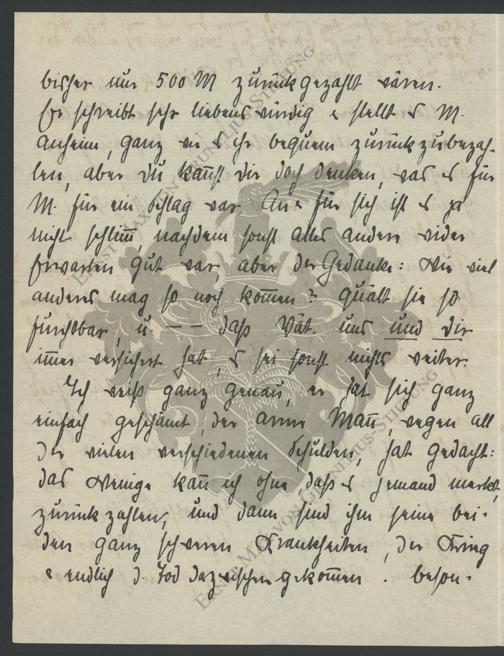 bisher nur 500 M zurückgezahlt wären.
Er schreibt sehr liebenswürdig & stellt es M.
anheim, ganz wie es ihr bequem zurückzubezah-
len, aber Du kannst Dir doch denken, was es für
M. für ein Schlag war. An & für sich ist es ja
nicht schlim̄, nachdem sonst alles andere wider
Erwarten gut war, aber der Gedanke: Wie viel
anderes mag so noch kom̄en? quält sie so
furchtbar, u. — — daß Vat. uns und Dir
im̄er versichert hat, es sei sonst nichts weiter.
Ich weiß ganz genau, er hat sich ganz
einfach geschämt der arme Man̄, wegen all
der vielen verschiedenen Schulden, hat gedacht:
das Wenige kan̄ ich ohne, daß es jemand merkt,
zurückzahlen, und dann sind ihm seine bei-
den ganz schweren Krankheiten, der Krieg
& endlich d. Tod dazwischen gekom̄en. beson-